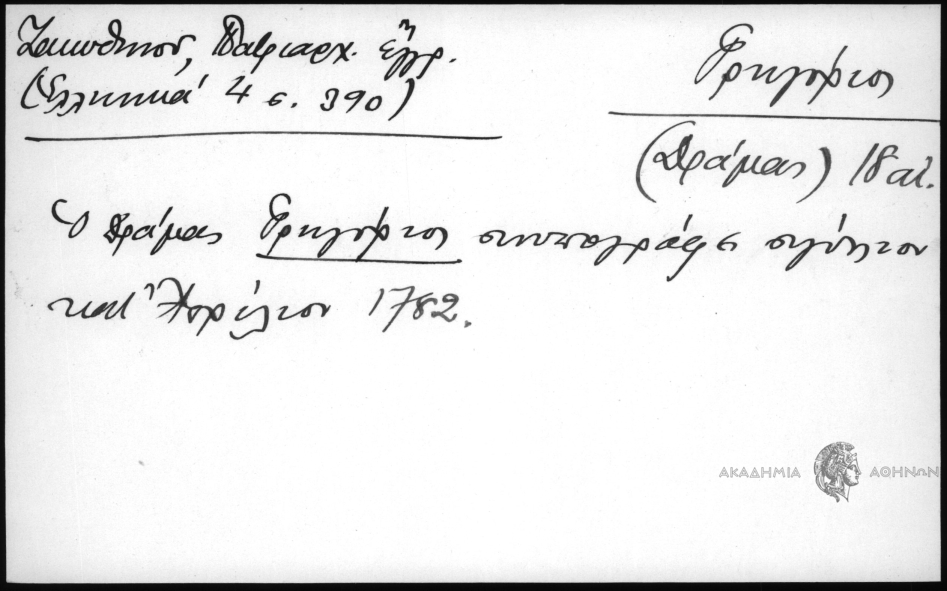 Ζακυθηνού, Πατριαρχ. ἔγγρ.
(Ἑλληνικά 4 σ. 390)
Γρηγόριος
(Δράμας) 18 αἰ.
Ὁ Δράμας Γρηγόριος συνυπογράφει σιγίλλιον
κατ' Ἀπρίλιον 1782.
ΑΚΑΔΗΜΙΑ ΑΘΗΝΩΝ